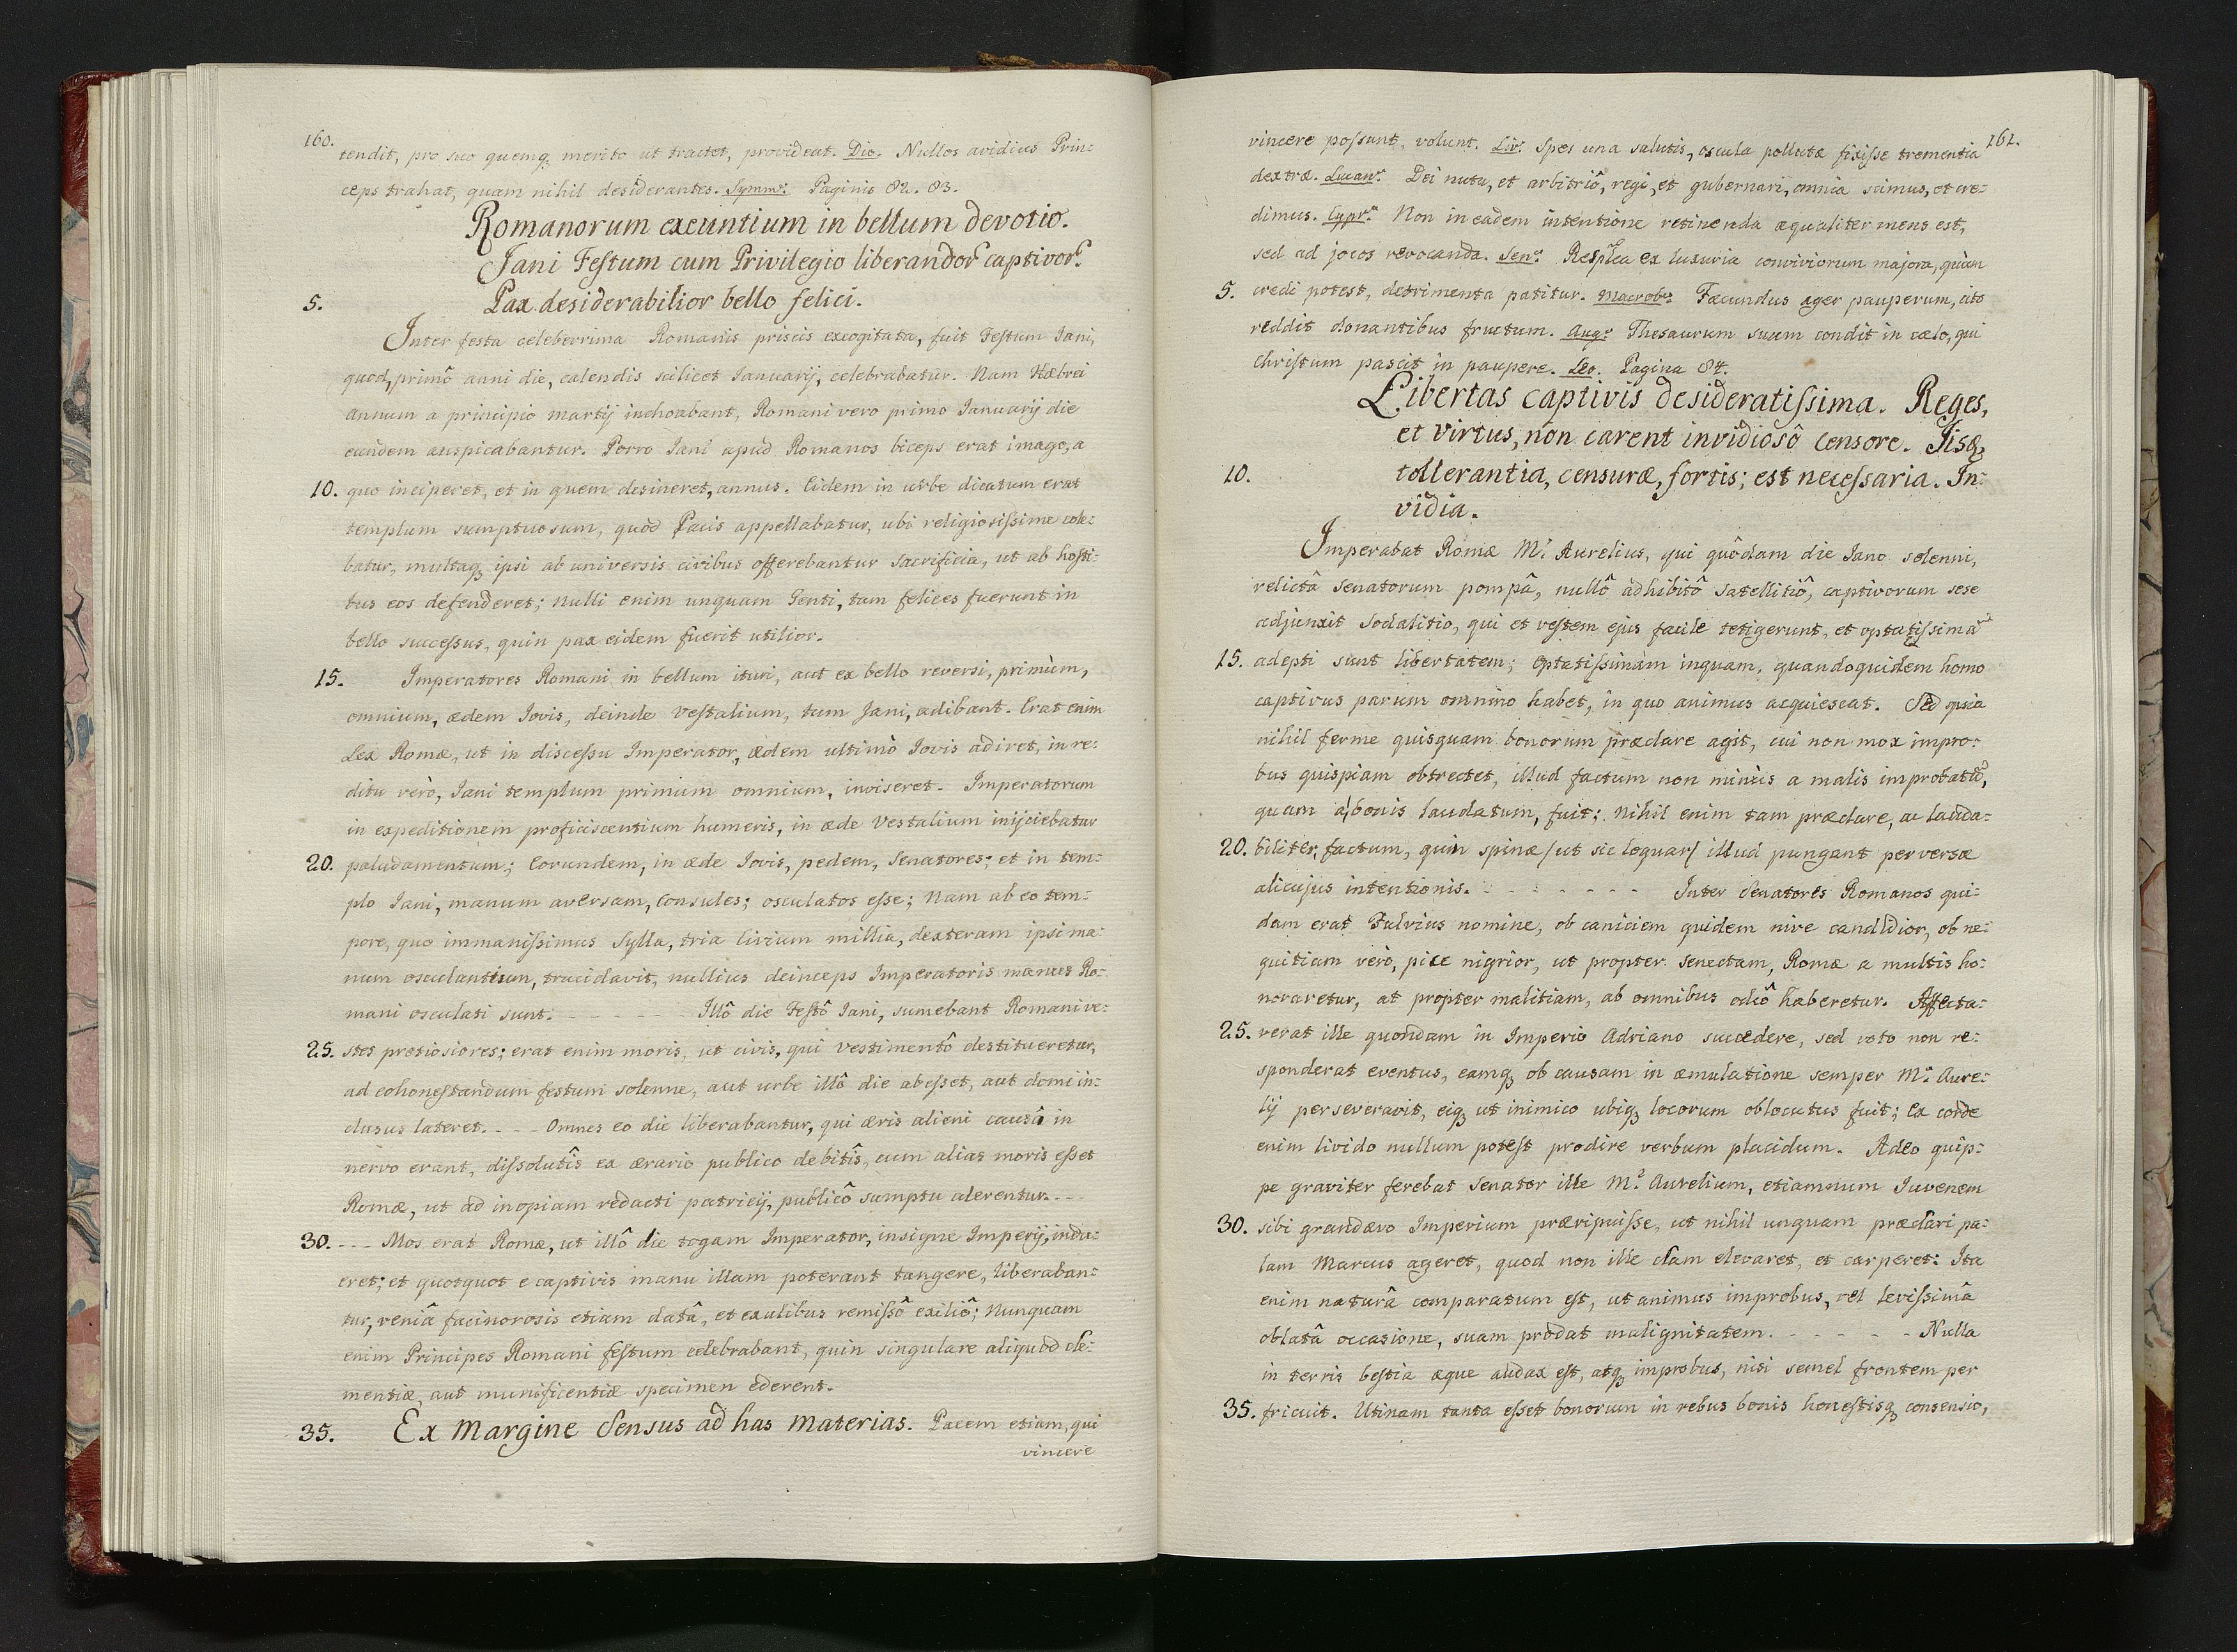 160.
tendit, pro suo quemq; merito ut tractet, provideat. Dio. Nullos avidius Prin:
ceps trahat, quam nihil desiderantes. Symm: Paginis 82. 83.
Romanorum exeuntium in bellum devotio.
Jani Festum cum Privilegio liberandor captivor.
5. Pax desiderabilior bello felici.
Inter festa celeberrima Romanis priscis excogitata, fuit Festum Iani,
quod, primô anni die, calendis scilicet Ianuarij, celebrabatur. Nam Hæbrei
annum a principio martij inchoabant, Romani vero primo Ianuarij die
eundem auspicabantur. Porro Iani apud Romanos biceps erat imago, a
10. quo inciperet, et in quem desineret, annus. Eidem in urbe dicatum erat
templum sumptuosum, quod Pacis appellabatur, ubi religiosissime cole:
batur, multaq; ipsi ab universis civibus offerebantur sacrificia, ut ab hosti:
bus eos defenderet; nulli enim unquam Genti, tam felices fuerunt in
bello successus, quin pax eidem fuerit utilior.
15. Imperatores Romani in bellum ituri, aut ex bello reversi, primùm,
omnium, ædem Iovis, deinde Vestalium, tum Jani, adibant. Erat enim
Lex Romæ, ut in discessu Imperator, ædem ultimò Iovis adiret, in re:
ditu verò, Iani templum primum omnium, inviseret. Imperatorum
in expeditionem proficiscentium humeris, in æde Vestalium inijciebatur
20. paludamentum; Eorundem, in æde Iovis, pedem, Senatores; et in tem:
plo Iani, manum aversam, Consules; osculatos esse; Nam ab eo tem:
pore, quo immanissimus Sylla, tria Civium millia, dexteram ipsi ma:
num osculantium, trucidavit, nullius deinceps Imperatoris manus Ro:
mani osculati sunt. - - - - - Illô die Festô Iani, sumebant Romani ve:
25. stes pretiosiores; erat enim moris, ut civis, qui vestimentô destitueretur,
ad cohonestandum festum solenne, aut urbe illô die abesset, aut domi in:
clusus lateret. - - - Omnes eo die liberabantur, qui æris alieni causâ in
nervo erant, dissolutîs ex ærario publico debitîs, cum alias moris esset
Romæ, ut ad inopiam redacti patricij, publicô sumptu alerentur. - - -
30. - - - Mos erat Romæ, ut illô die togam Imperator, insigne Imperij, indu:
eret; et quotquot e captivis manu illam poterant tangere, liberaban:
tur, veniâ facinorosis etiam datâ, et exulibus remissô exiliô; Nunquam
enim Principes Romani festum celebrabant, quin singulare aliquod cle:
mentiæ, aut munificentiæ specimen ederent.
35. Ex Margine Sensus ad has Materias. Pacem etiam, qui
vincere
161.
vincere possunt, volunt. Liv. Spes una salutis, oscula pollutæ fixisse trementia
dextræ. Lucan. Dei nutu, et arbitriô, regi, et gubernari, omnia scimus, et cre:
dimus. Cypr. Non in eadem intentione retinenda æqualiter mens est,
sed ad jocos revocanda. Sen. Resplca ex luxuria conviviorum majora, quàm
5. credi potest, detrimenta patitur. Macrob. Fæcundus ager pauperum, cito
reddit donantibus fructum. Aug. Thesaurum suum condit in cælo, qui
Christum pascit in paupere. Leo. Pagina 84.
Libertas captivis desideratissima. Reges,
et virtus, non carent invidiosô censore. Iisq;
10. tollerantia, censuræ, fortis; est necessaria. In:
vidia.
Imperabat Romæ M. Aurelius, qui quôdam die Iano solenni,
relictâ Senatorum pompâ, nullô adhibitô Satellitiô, captivorum sese
adjunxit Sodalitio, qui et vestem ejus facile tetigerunt, et optatissimã
15. adepti sunt libertatem; Optatissimam inquam, quandoquidem homo
captivus parum omnino habet, in quo animus acquiescat. Sed quia
nihil ferme quisquam bonorum præclare agit, cui non mox impro:
bus quispiam obtrectet, illud factum non minùs a malis improbatũ,
quam a bonis laudatum, fuit; Nihil enim tam præclare, ac lauda:
20. biliter, factum, quin spinæ /ut sic loquar/ illud pungant perversæ
alicujus intentionis. - - - - - - - Inter Senatores Romanos qui:
dam erat Fulvius nomine, ob caniciem quidem nive candidior, ob ne:
quitiam verò, pice nigrior, ut propter senectam, Romæ a multis ho:
noraretur, at propter malitiam, ab omnibus odiô haberetur. Affecta:
25. verat ille quondam in Imperio Adriano succedere, sed voto non re:
sponderat eventus, eamq; ob causam in æmulatione semper M. Aure:
lij perseveravit, eiq; ut inimico ubiq; locorum oblocutus fuit; Ex corde
enim livido nullum potest prodire verbum placidum. Adeo quip:
pe graviter ferebat Senator ille M. Aurelium, etiamnum Iuvenem
30. sibi grandævo Imperium præripuisse, ut nihil unquam præclari pa:
lam Marcus ageret, quod non ille clam elevaret, et carperet: Ita
enim naturâ comparatum est, ut animus improbus, vel levissimâ
oblatâ occasione, suam prodat malignitatem. - - - - - Nulla
in terris bestia æque audax est, atq; improbus, nisi semel frontem per
35. fricuit. Utinam tanta esset bonorum in rebus bonis honestisq; consensio,